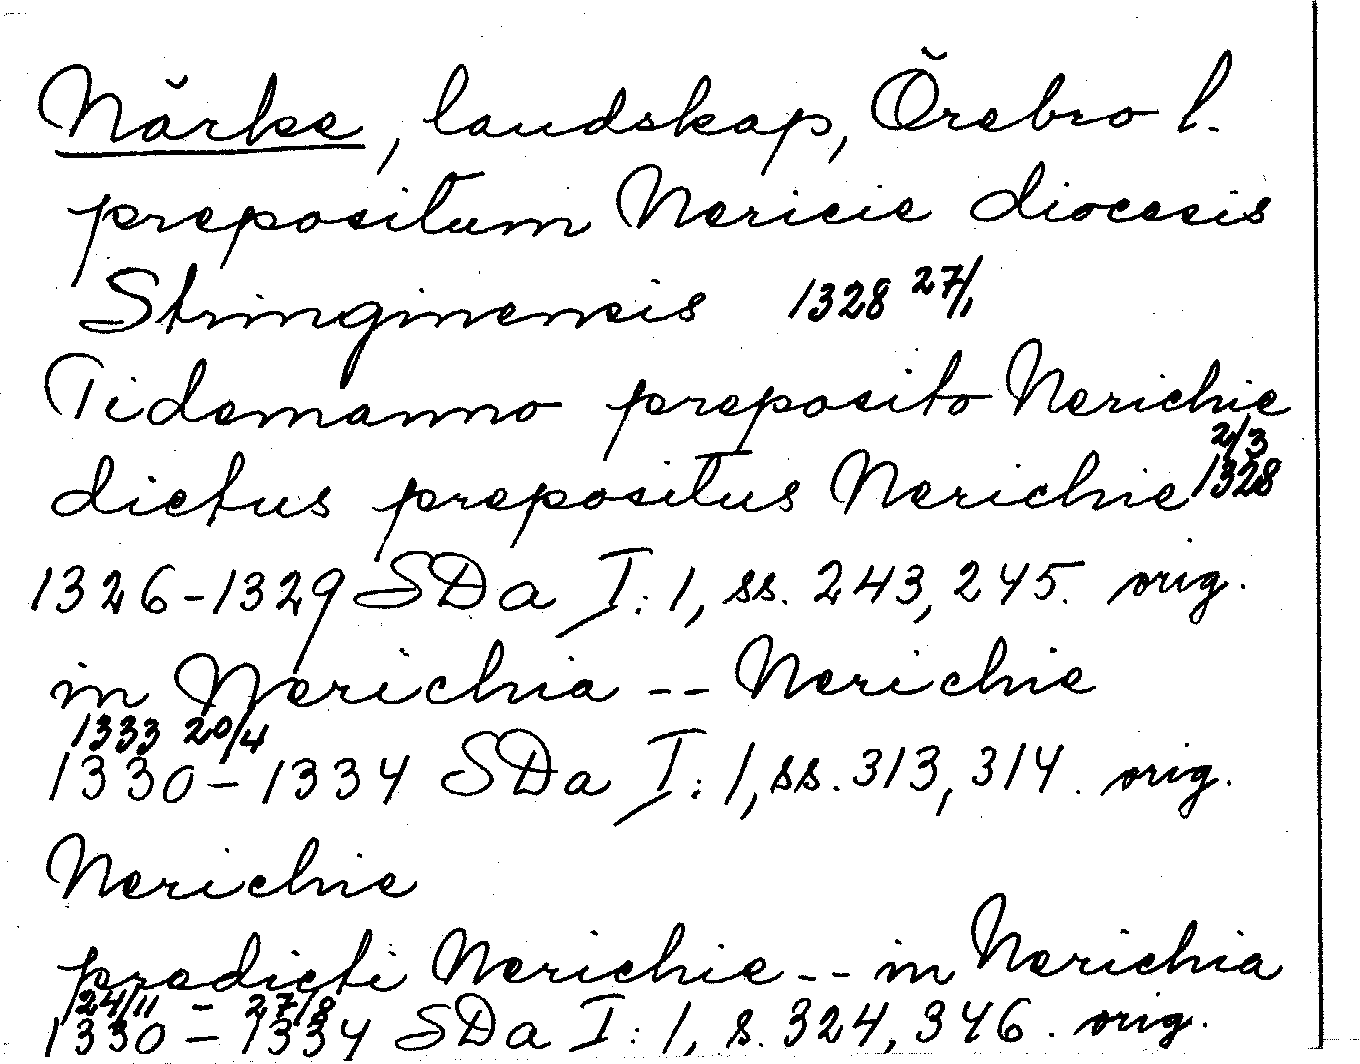 Närke, landskap, Örebro l.
prepositum Nericie diocesis
Stringinensis 1328 27/1
Tidemanno preposito Nerichie
2/3
dictus prepositus Nerichie 1328
1326-1329 SDa I:1, ss. 243, 245. orig.
in Nerichia -- Nerichie
1333 20/4
1330-1334 SDa I:1, ss. 313, 314. orig.
Nerichie
predicti Nerichie -- in Nerichia
24/11 - 27/8
1330-1334 SDa I:1, s. 324, 346. orig.